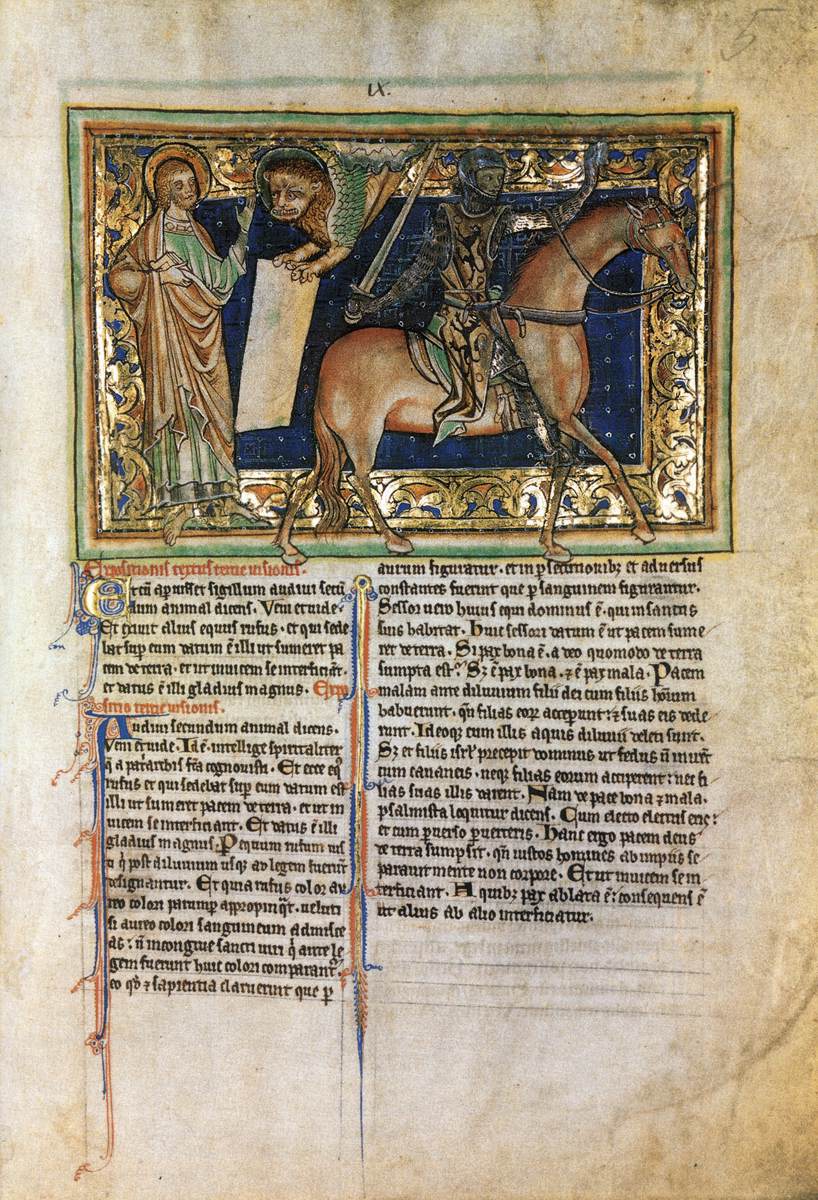 5
IX.
Expositionis textus tercie visionis.
Et cū apuisset sigillum audiui secū
dum animal dicens. Veni et uide.
Et exiuit alius equus rufus. et qui sede
bat sup eum datum ē illi ut sumeret pa
cem de terra. et ut inuicem se interficiāt.
et datus ē illi gladius magnus. Expo
sitio tercie uisionis.
Audiui secundum animal dicens.
Veni et uide. Id ē. intellige spiritaliter
Et ecce eqͥ
rufus et qui sedebat sup eum datum est
illi ut sumeret pacem de terra. et ut in
uicem se interficiant. Et datus ē illi
gladius magnus. Per equum rufum iusti
qͥ post diluuium usqꝫ ad legem fuerūt
designantur. Et quia rufus color au
reo colori parump appropinqͣt. ueluti
si aureo colori sanguineum admisce
as: n̄ incongrue sancti uiri qͥ ante le
gem fuerunt huic colori comparant͛.
eo qd̓ ⁊ sapientia claruerint que p
aurum figuratur. et in psecutionibꝫ et aduersus
constantes fuerint que p sanguinem figurantur.
Sessor uero huius equi dominus ē. qui in sanctis
suis habitat. Huic sessori datum ē ut pacem sume
ret de terra. Si pax bona ē. a deo quomodo de terra
sumpta est? Sꝫ ē pax bona. ⁊ ē pax mala. Pacem
malam ante diluuium filii dei cum filiis hoīum
babuerunt. qn̄ filias eoꝝ acceperunt: ⁊ suas eis dede
runt. Ideoqꝫ cum illis aquis diluuii deleti sunt.
Sꝫ et filiis isrl̓ precepit dominus ut fedus n̄ inirēt
cum cananeis. neqꝫ filias eorum acciperent: nec fi
lias suas illis darent. Nam de pace bona ⁊ mala.
psalmista loquitur dicens. Cum electo electus eris:
et cum puerso puerteris. Hanc ergo pacem deus
de terra sumpsit. qn̄ iustos homines ab impiis se
parauit mente non corpore. Et ut inuicem se in
terficiant. A quibꝫ pax ablata ē: consequens ē
ut alius ab alio interficiatur.